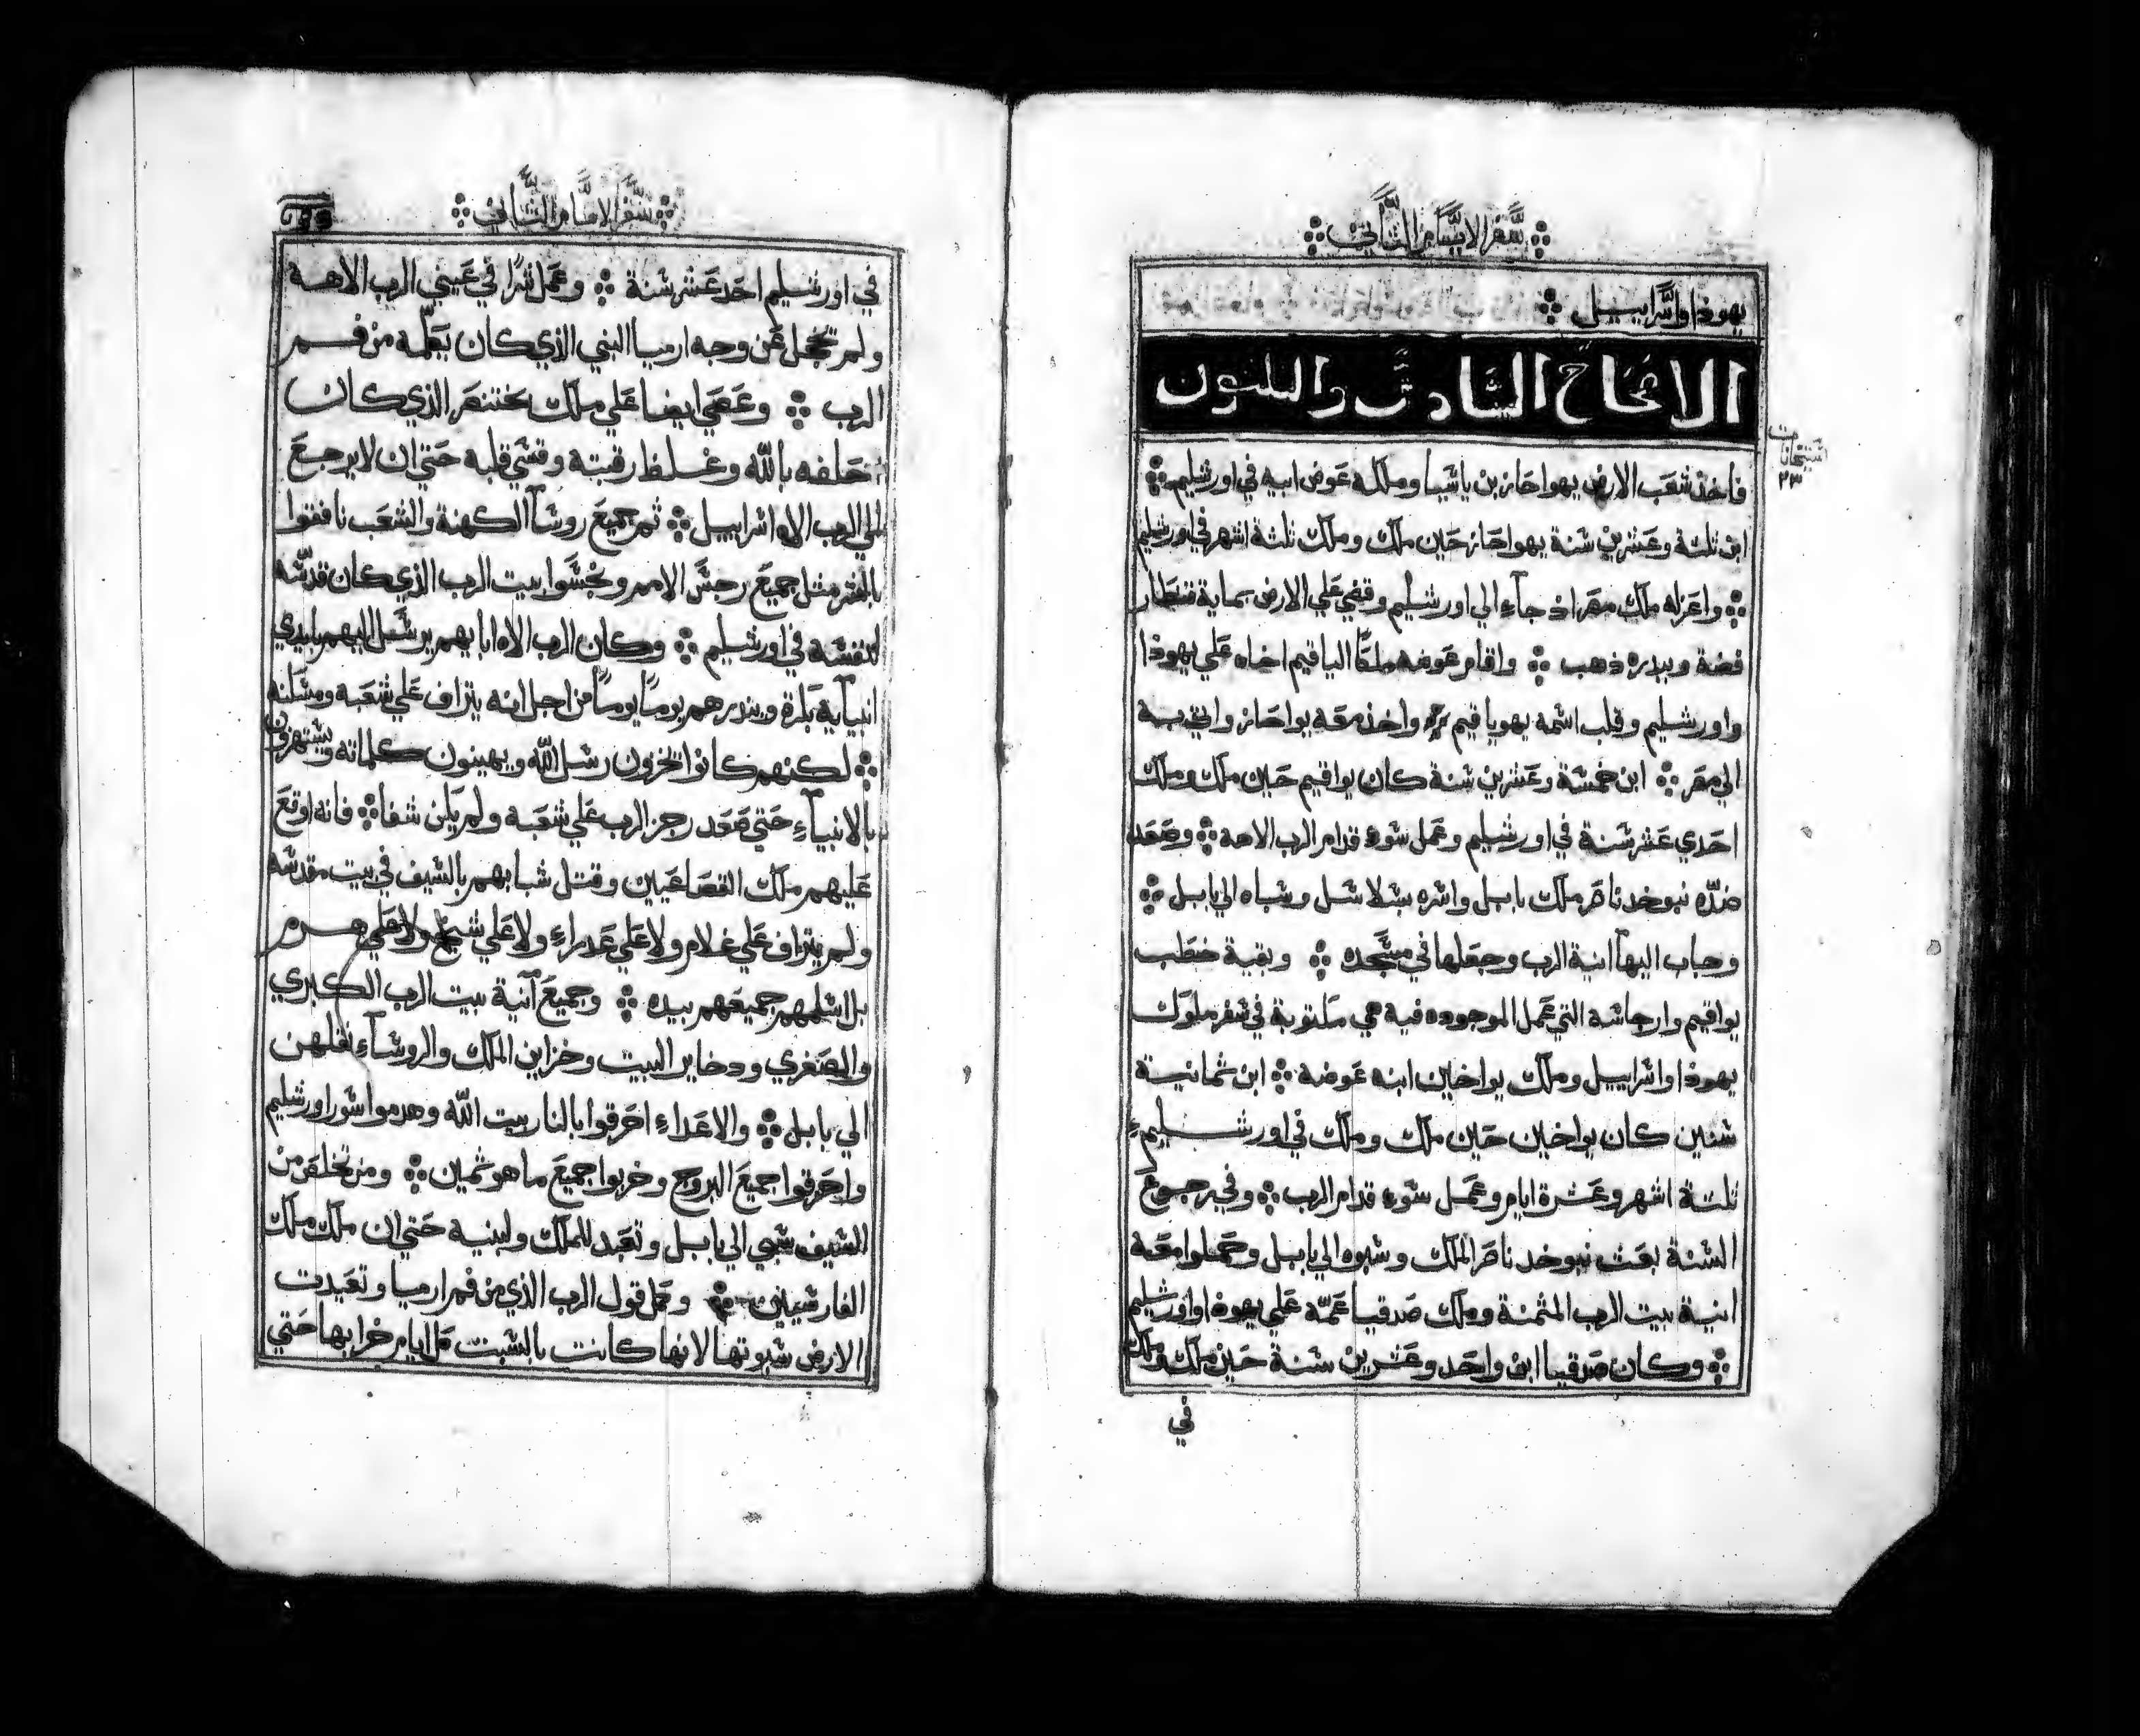 سفر الايام الثاني
يهوذا واسراييل
الاصحاح السادس والثلثون
استحانات
٢٣
فاخذ شعب الارض يهواحاز بن ياشيا وملكه عوض ابيه في اورشليم
ابن ثلثة وعشرين سنة يهواحاز حين ملك وملك ثلثة اشهر في اورشليم
واعزله ملك مصر اذ جآء الي اورشليم وقضي علي الارض بماية قنطار
فضة وببدره ذهب واقام عوضه ملكًا الياقيم اخاه علي يهوذا
واورشليم وقلب اسمه يهوياقيم واخذ معه يواحاز واتي به
الي مصر ابن خمسة وعشرين سنة كان يواقيم حين ملك وملك
احدي عشر سنة في اورشليم وعمل سوء قدام الرب الاهه وصعد
ضدّه نبوخدناصر ملك بابل واسره بسلاسل وسباه الي بابل
وجاب اليها آنية الرب وجعلها في مسجده وبقية خطب
يواقيم وارجاسه التي عمل الموجوده فيه هي مكتوبة في سفر ملوك
يهوذا واسراييل وملك يواخاين ابنه عوضه ابن ثمانية
سنين كان يواخين حين ملك وملك في اورشليم
ثلثة اشهر وعشرة ايام وعمل سوء قدام الرب وفي رجوع
السنة بعث نبوخدناصر الملك وسبوه الي بابل وحملوا معه
انية بيت الرب المثمنة وملك صدقيا عمّه علي يهوذا واورشليم
وكان صدقيا ابن واحد وعشرين سنة حين ملك وملك
في
سفر الايام الثاني
في اورشليم احد عشر سنة وعمل شرًا في عيني الرب الاهه
ولم يخجل عن وجه ارميا النبي الذي كان يعلّمه من فم
الرب وعصي ايضا علي ملك بختنصر الذي كان
حلفه بالله وغلظ رقبته وقسي قلبه حتي ان لا يرجع
الي الرب الاه اسراييل ثم جميع روسآ الكهنة والشعب نافقوا
بالشر مثل جميع رجس الامم ونجسوا بيت الرب الذي كان قدسه
لنفسه في اورشليم وكان الرب الاه ابايهم يرسل اليهم بايدي
انبيآيه بكرة وينذرهم يومًا يومًا من اجل انه يتراف علي شعبه ومسكنه
لكنهم كانوا يخزون رسل الله ويهينون كلماته ويستهزون
بالانبيآءِ حتي صعد رجز الرب علي شعبه ولم يكن شفا فانه اوقع
عليهم ملك القصاعيين وقتل شبابهم بالسيف في بيت مقدسه
ولم يتراف علي غلام ولا علي عدراءِ ولا علي شيخ ولا علي هرم
بل اسلمهم جميعهم بيده وجميع آنية بيت الرب الكبري
والصغري ودخاير البيت وخزاين الملك والروسآءِ نقلهن
الي بابل والاعداءِ احرقوا بالنار بيت الله وهدموا سور اورشليم
واحرقوا جميع البروج وخربوا جميع ما هو ثمين ومن تخلص من
السيف سبي الي بابل وتعبد للملك ولبنيه حتي ان ملك ملك
الفارسيين وكمل قول الرب الذي من فم ارميا وتعيدت
الارض سبوتها لانها كانت بالسبت كل ايام خرابها حتي